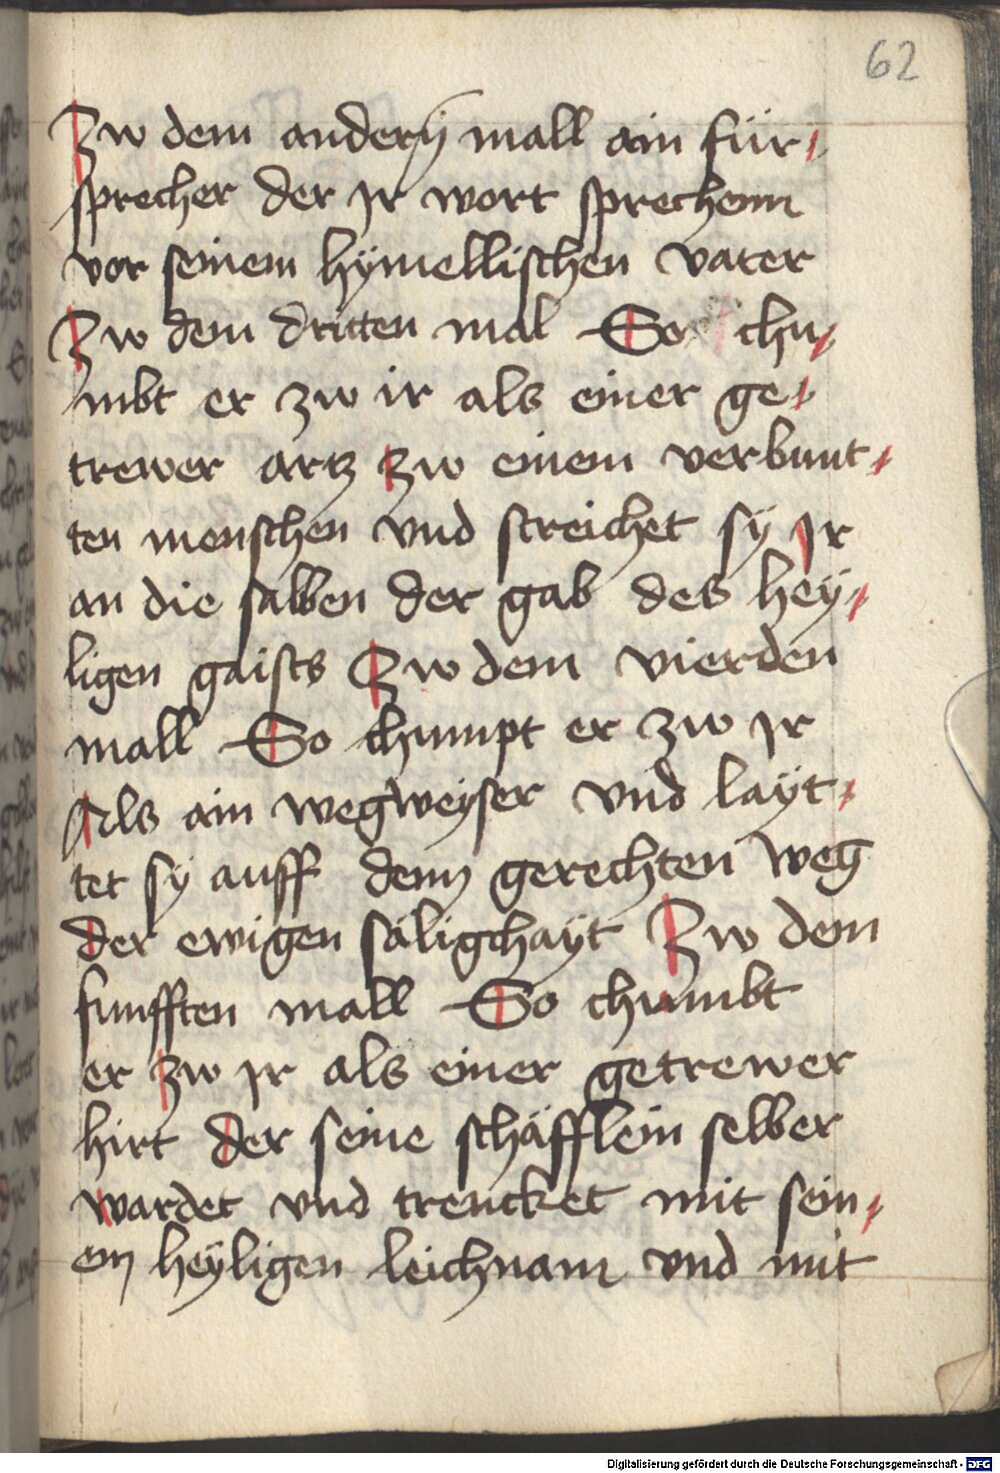 62
Zw dem anderñ mall ain für-
sprecher der Ir wort sprechenn
vor seinem hÿmellischen vater
Zw dem dritten mal So chu-
mbt er zw ir als einer ge-
trewer artz zw einem verbunt-
ten menschen vnd streichet sÿ Ir
an die salben der gab des heÿ-
ligen gaists Zw dem vierden
mall So chumpt er zw Ir
Als ain wegweÿser vnd laÿt-
tet sÿ auff denn gerechten weg
der ewigen säligchaÿt Zw dem
funfften mall So chumbt
er zw Ir als einer getrewer
hirt der seine schäfflein selber
wardet vnd trencket mit sein-
em heÿligen leichnam vnd mit
Digitalisierung gefördert durch die Deutsche Forschungsgemeinschaft - DFG